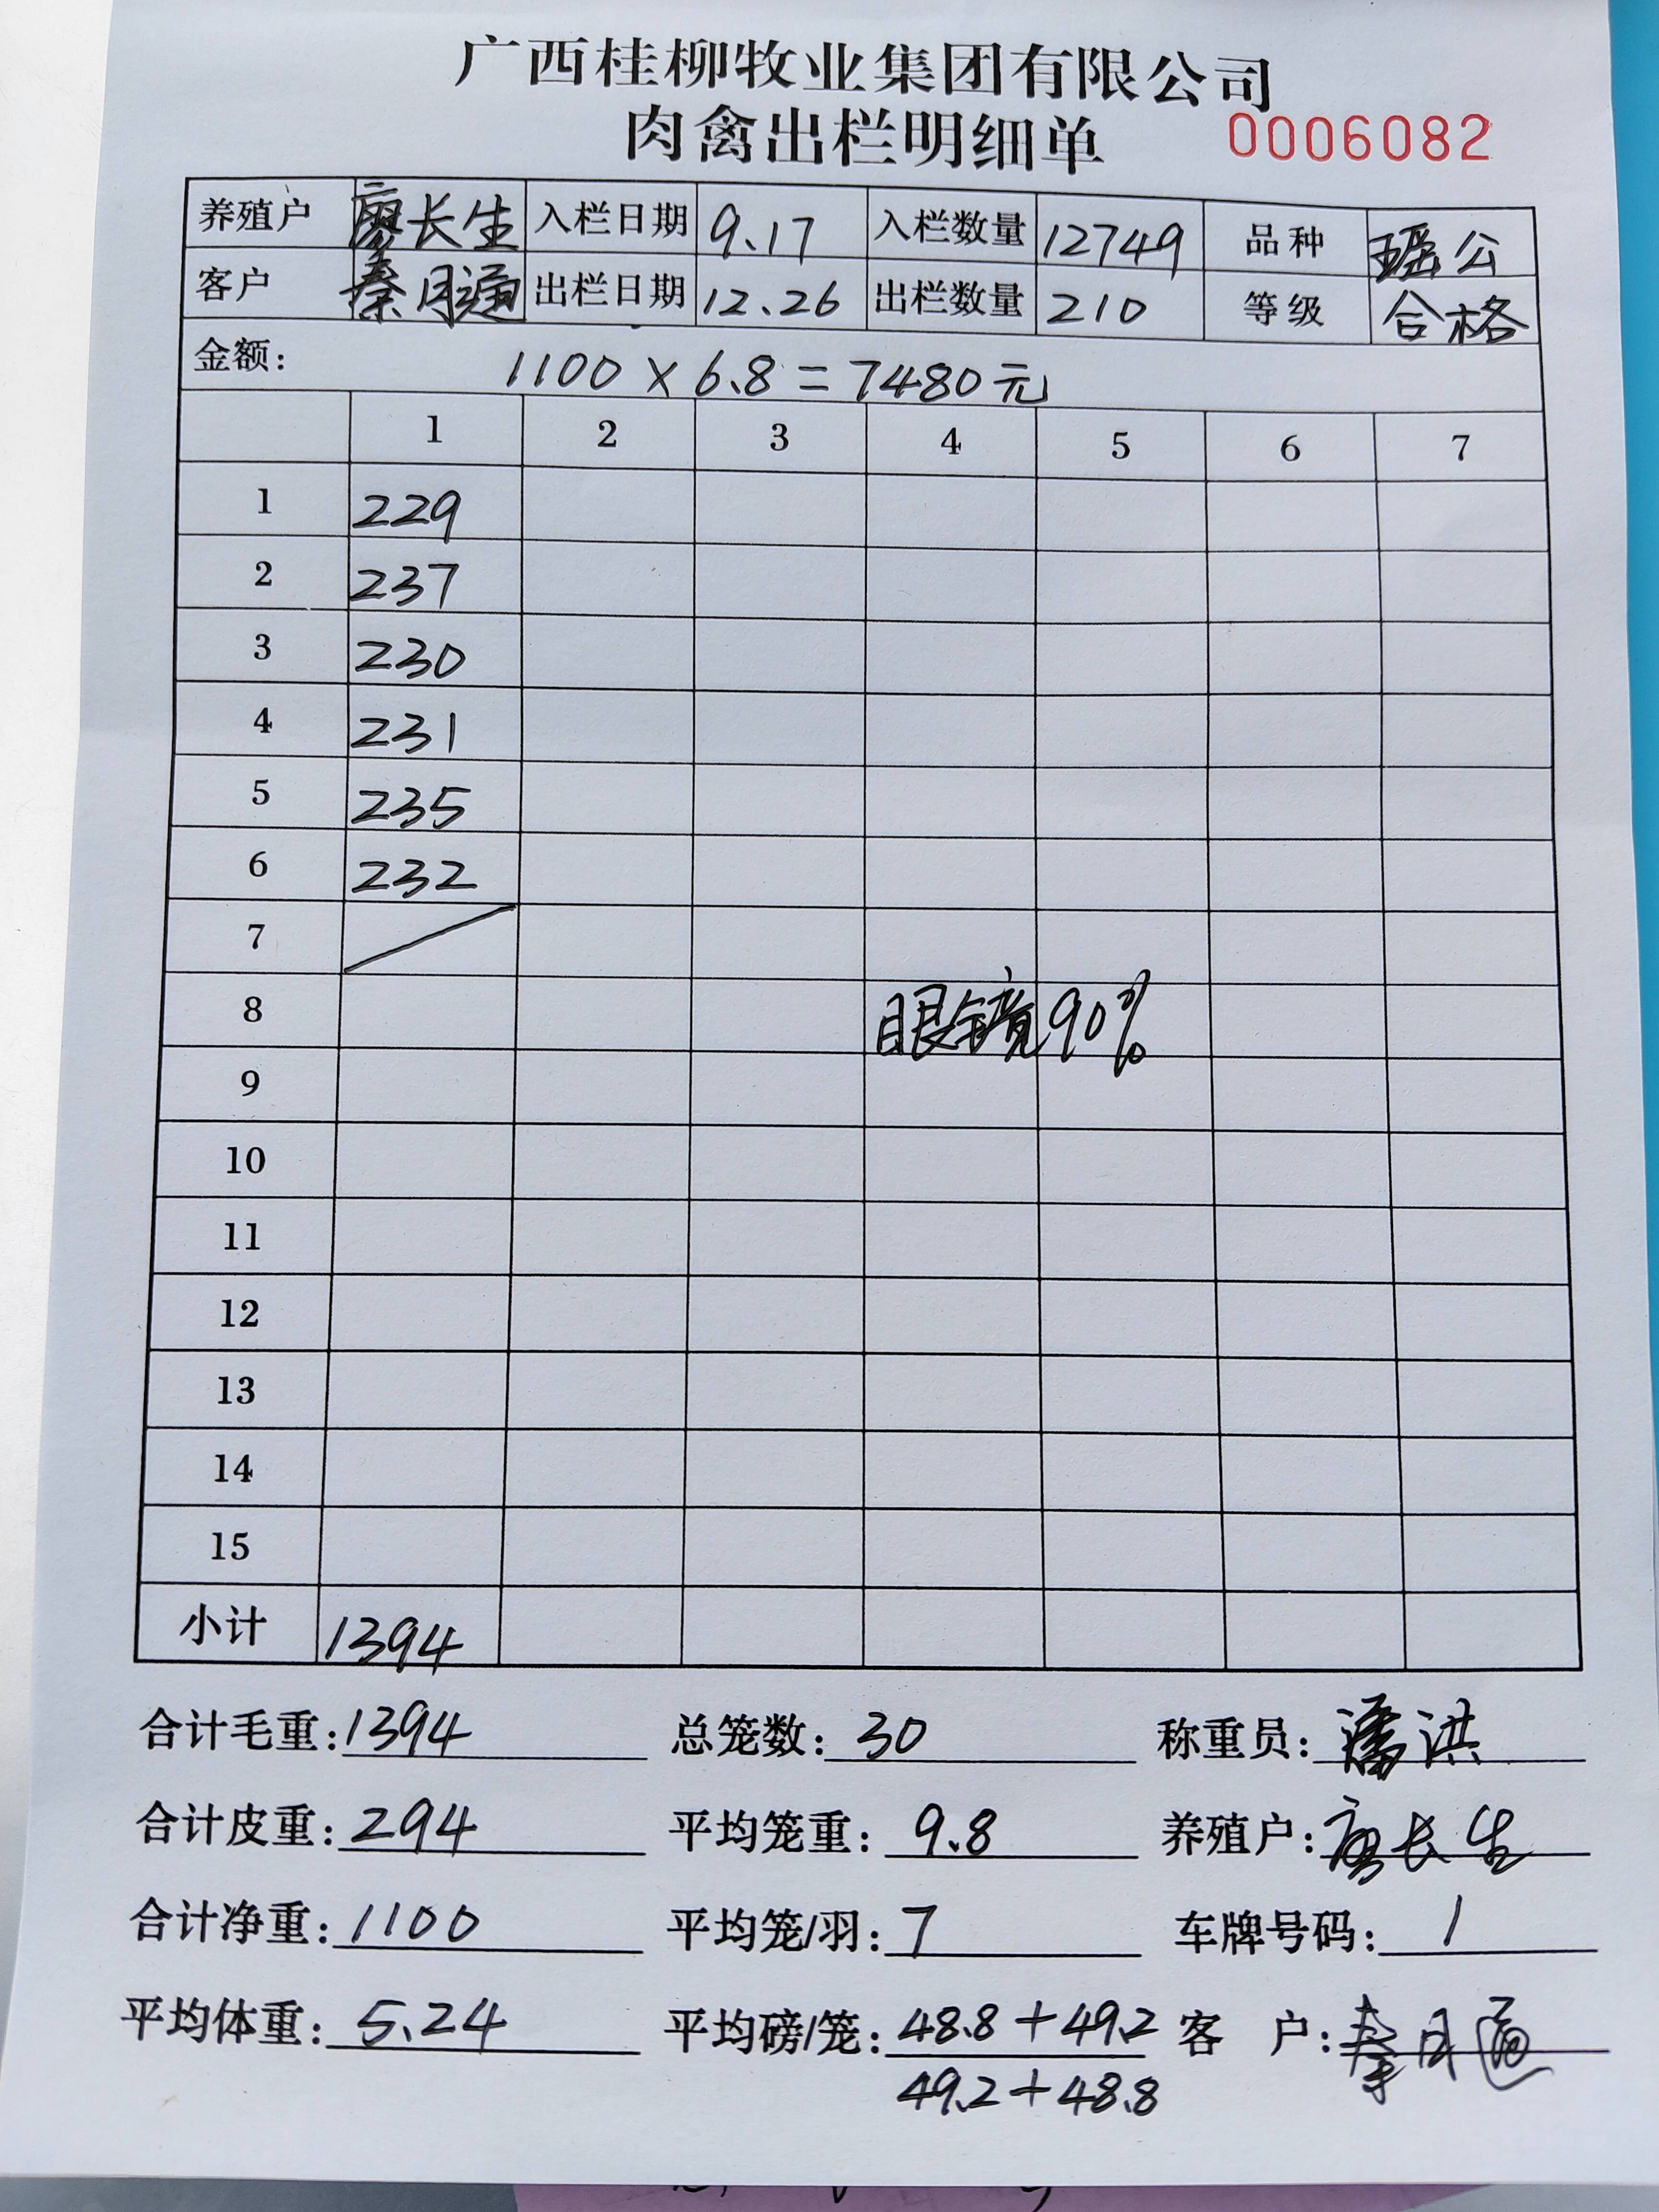 广西桂柳牧业集团有限公司
肉禽出栏明细单 0006082
养殖户 廖长生 入栏日期 9.17 入栏数量 12749 品种 瑶公
客户 秦月通 出栏日期 12.26 出栏数量 210 等级 合格
金额: 1100 × 6.8 = 7480元
1 2 3 4 5 6 7
1 229
2 237
3 230
4 231
5 235
6 232
7
8 眼镜90%
9
10
11
12
13
14
15
小计 1394
合计毛重: 1394 总笼数: 30 称重员: 潘洪
合计皮重: 294 平均笼重: 9.8 养殖户: 廖长生
合计净重: 1100 平均笼/羽: 7 车牌号码: 1
平均体重: 5.24 平均磅/笼: 48.8+49.2 客 户: 秦月通
49.2+48.8